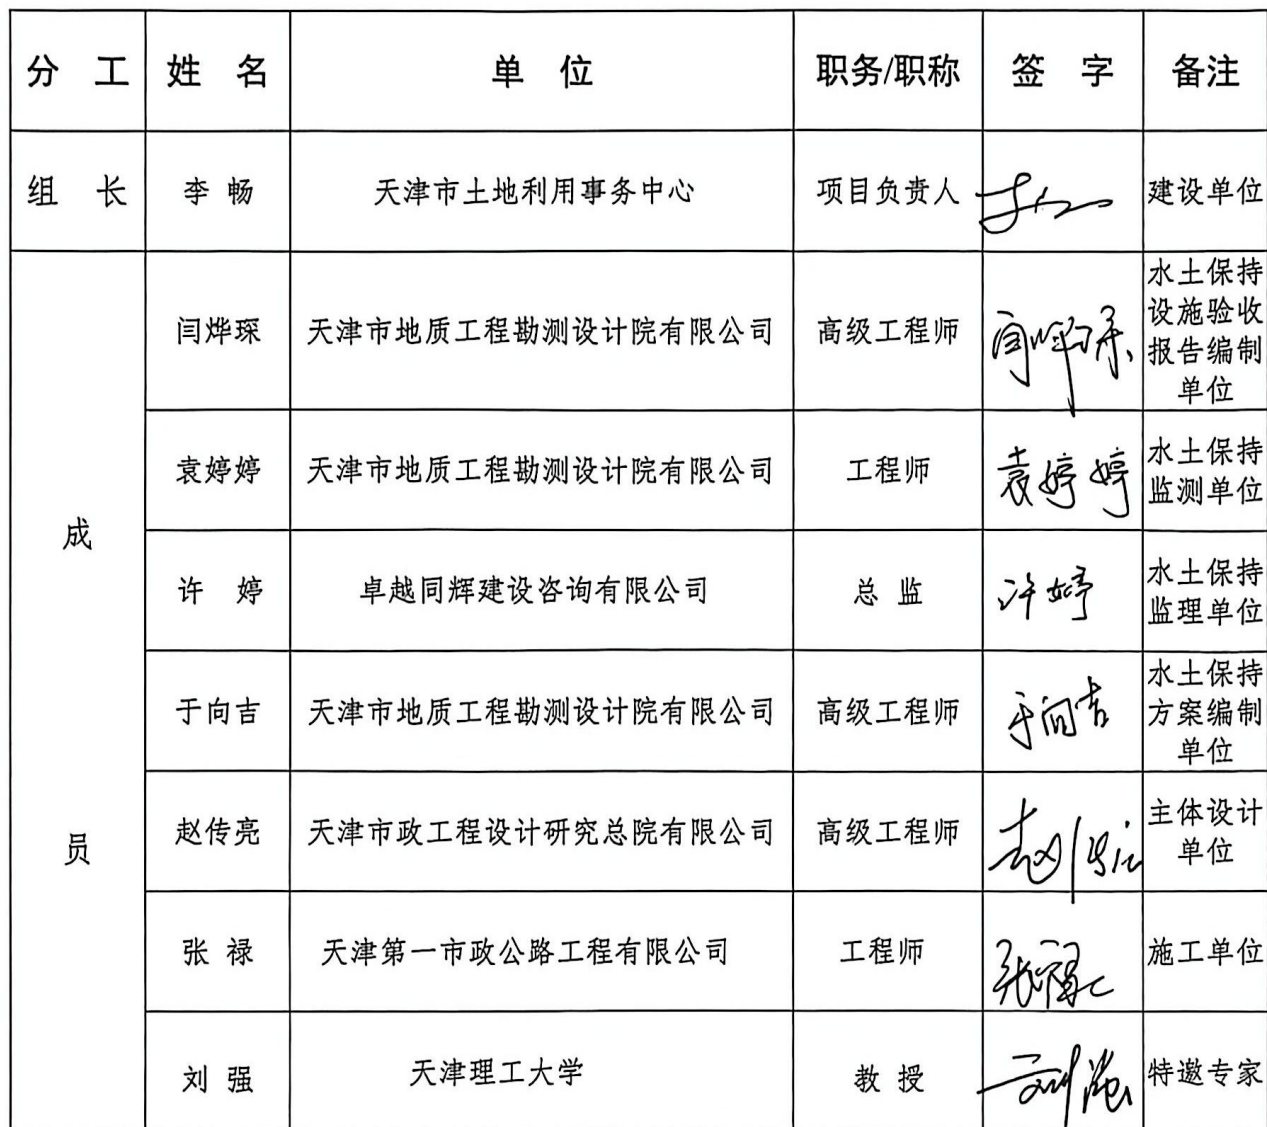 分 工 姓 名 单 位 职务/职称 签 字 备注
组 长 李 畅 天津市土地利用事务中心 项目负责人 建设单位
成
员
闫烨琛 天津市地质工程勘测设计院有限公司 高级工程师 闫烨琛 水土保持
设施验收
报告编制
单位
袁婷婷 天津市地质工程勘测设计院有限公司 工程师 袁婷婷 水土保持
监测单位
许 婷 卓越同辉建设咨询有限公司 总 监 许婷 水土保持
监理单位
于向吉 天津市地质工程勘测设计院有限公司 高级工程师 于向吉 水土保持
方案编制
单位
赵传亮 天津市政工程设计研究总院有限公司 高级工程师 赵传亮 主体设计
单位
张 禄 天津第一市政公路工程有限公司 工程师 张禄 施工单位
刘 强 天津理工大学 教 授 刘强 特邀专家